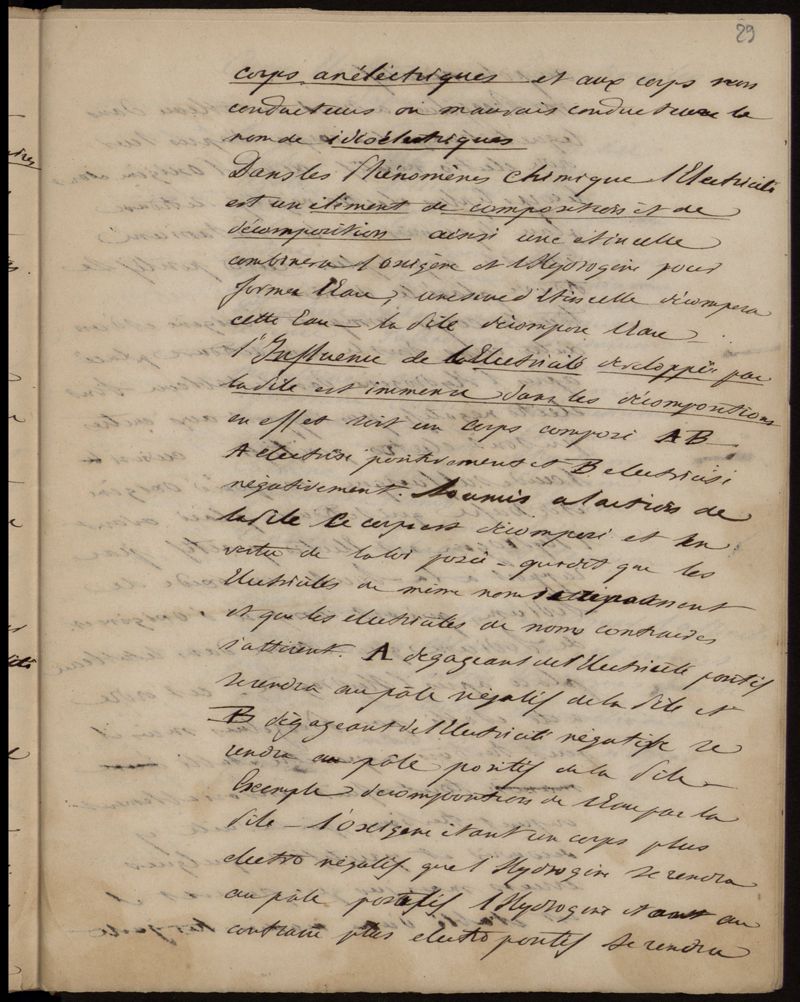 29
corps anélèctriques et aux corps non
conducteurs ou mauvais conducteurs le
nom de idioélectriques
Dans les Phénomènes chimique l'Electricité
est un élèment de composition et de
décomposition ainsi une étincelle
combinera l'oxigène et l'Hydrogène pour
former l'Eau; une d'étincelle décompera
cette Eau — la Pile décompose l'eau
l'Influence de la Electricité développée par
la Pile est immense dans les décompositions
en effet soit un corps composé AB
A electrisé positivement et B electricisé
négativement. Soumis a l'action de
la Pile Ce corps est décomposé et en
vertu de la loi posée — qui dit que les
Electricités de même nom se repoussent
et que les electricités de noms contraires
s'attirent. A dégageant de l'Electricité positif
se rendra au pôle négatif de la Pile et
B dégageant de l'Electricité négatife se
rendra au pôle positif de la Pile —
Exemple décomposition de l'Eau par la
Pile — l'oxigène étant un corps plus
electro négatif que l'Hydrogène se rendra
au pôle positif l'Hydrogène étant au
contraire plus electro positif se rendra